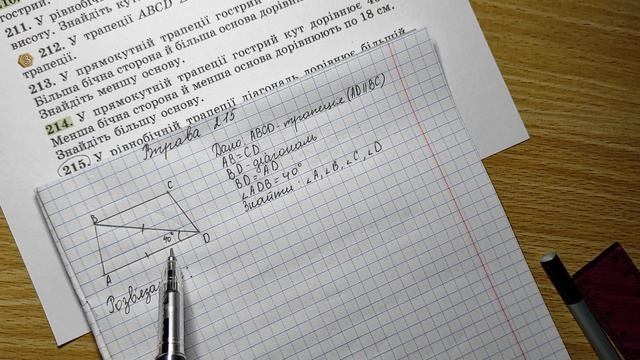 гострий
211. У рівнобічній трапеції гострий
висоту. Знайдіть кут
212. У трапеції ABCD
трапеції.
213. У прямокутній трапеції гострий кут дорівнює
Більша бічна сторона й більша основа дорівню
Знайдіть меншу основу.
214. У прямокутній трапеції гострий кут дорівнює
Менша бічна сторона й менша основа дорівнюють по 18 см.
Знайдіть більшу основу.
215. У рівнобічній трапеції діагональ дорівнює більшій
Вправа 215
Дано: ABCD - трапеція (AD||BC)
AB = CD
BD - діагональ
BD = AD
∠ADB = 40°
Знайти: ∠A, ∠B, ∠C, ∠D
C
B
40°
D
A
Розв'яза